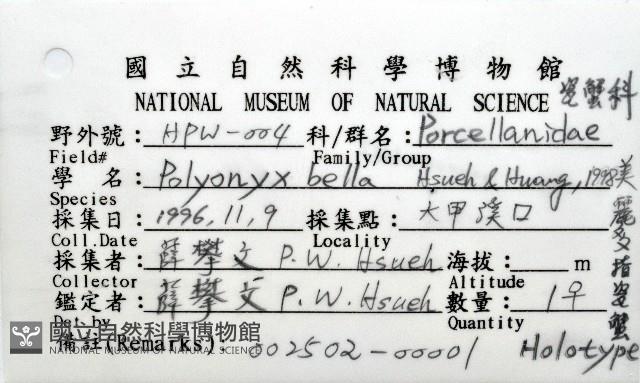 國立自然科學博物館
NATIONAL MUSEUM OF NATURAL SCIENCE 瓷蟹科
野外號: HPW-004 科/群名: Porcellanidae
Field# Family/Group
學 名: Polyonyx bella Hsueh & Huang, 1998 美麗多指瓷蟹
Species
採集日: 1996, 11, 9 採集點: 大甲溪口
Coll.Date Locality
採集者: 薛攀文 P.W. Hsueh 海拔: m
Collector Altitude
鑑定者: 薛攀文 P.W. Hsueh 數量: 1♀
Det.by Quantity
備註(Remarks) 002502-00001 Holotype
國立自然科學博物館
NATIONAL MUSEUM OF NATURAL SCIENCE